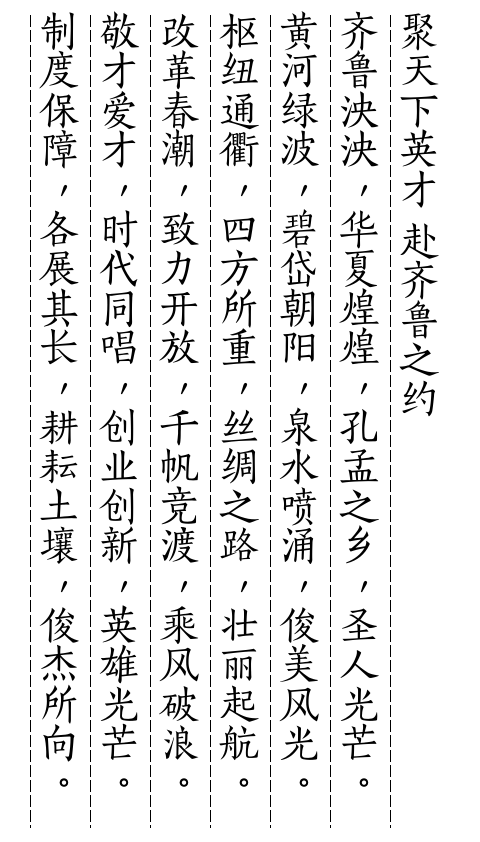 聚天下英才 赴齐鲁之约
齐鲁泱泱，华夏煌煌，孔孟之乡，圣人光芒。
黄河绿波，碧岱朝阳，泉水喷涌，俊美风光。
枢纽通衢，四方所重，丝绸之路，壮丽起航。
改革春潮，致力开放，千帆竞渡，乘风破浪。
敬才爱才，时代同唱，创业创新，英雄光芒。
制度保障，各展其长，耕耘土壤，俊杰所向。